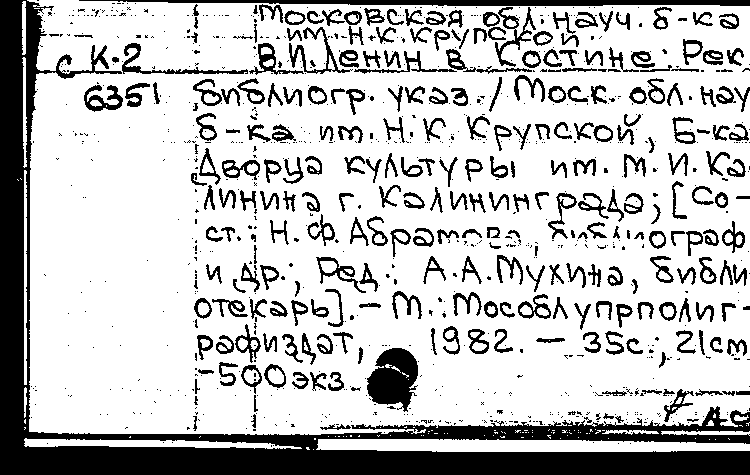 Московская обл. науч. б-ка
им. Н.К. Крупской.
с К-2 В.И. Ленин в Костине: Рек
6351 библиогр. указ. / Моск. обл. нау
б-ка им. Н.К. Крупской, Б-ка
Дворца культуры им. М.И. Ка-
линина г. Калининграда; [Со-
ст.: Н.Ф. Абрамова, библиограф
и др.; Ред.: А.А. Мухина, библи
отекарь]. – М.: Мособлупрполиг-
рафиздат, 1982. – 35с.; 21см
-500экз.